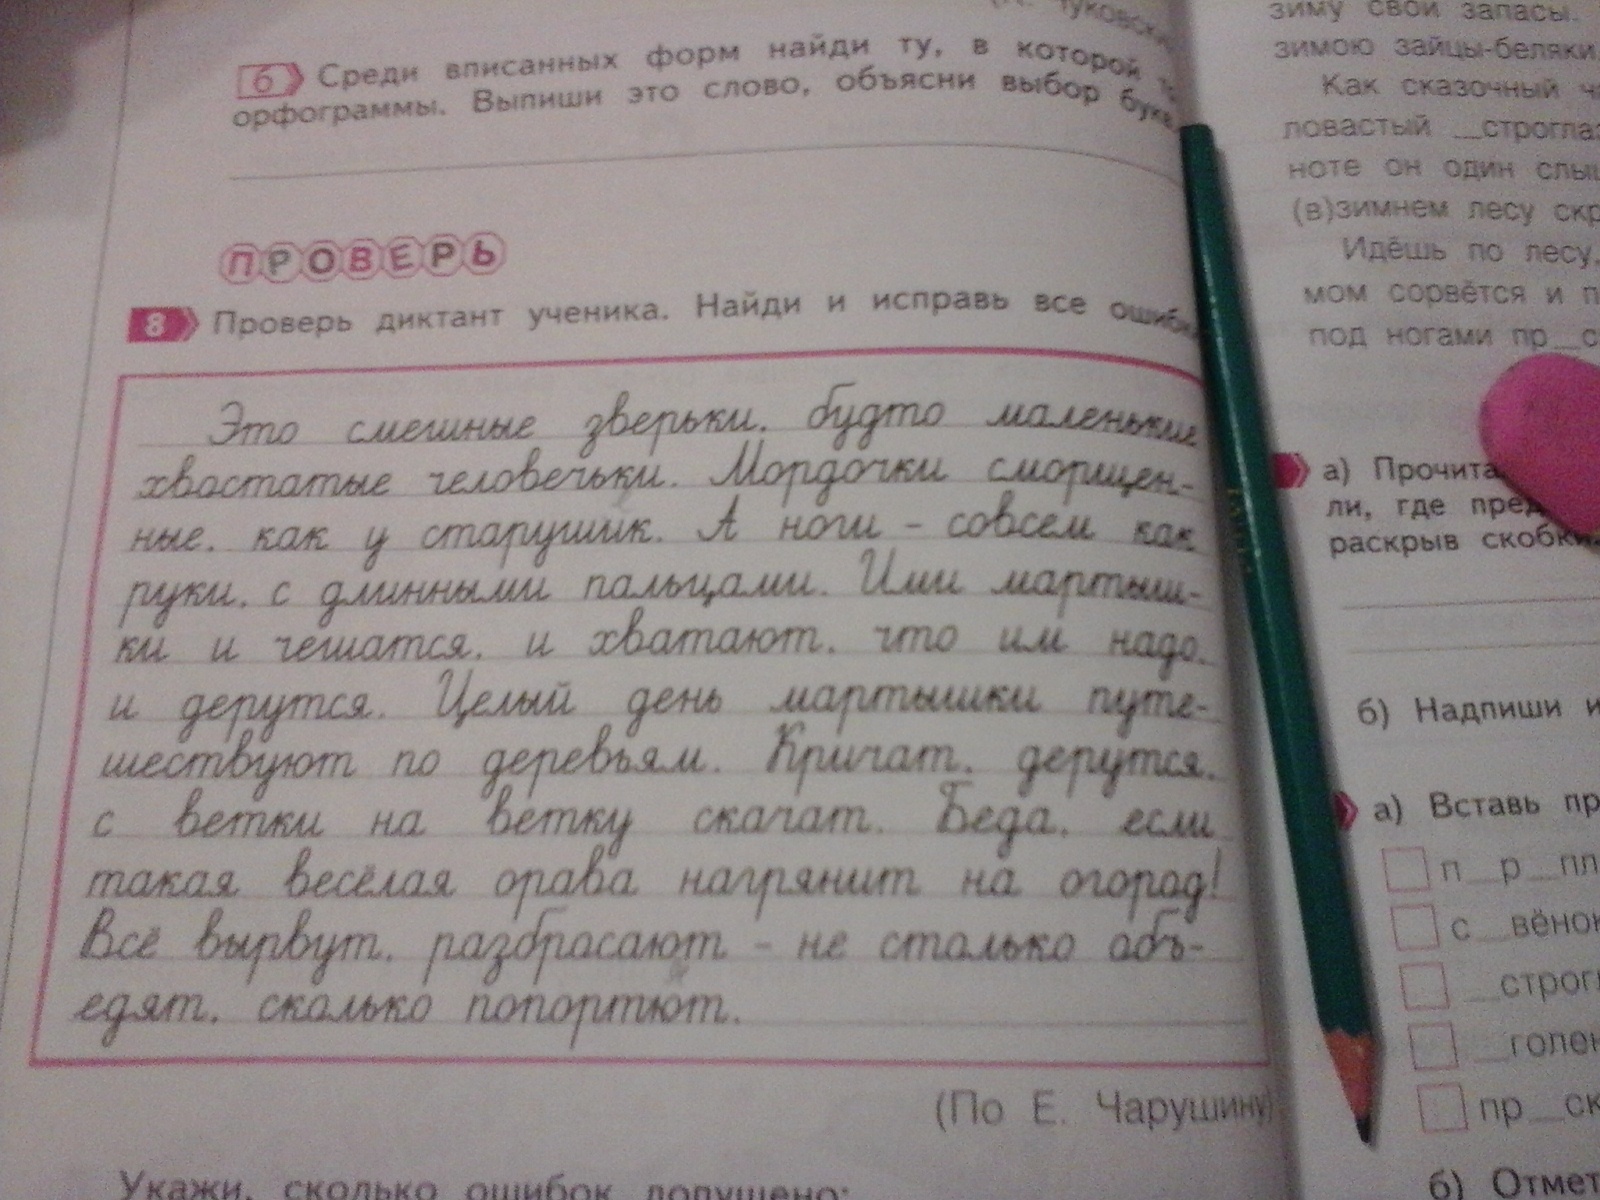 6 Среди вписанных форм найди ту, в которой
орфограммы. Выпиши это слово, объясни выбор букв
ПРОВЕРЬ
8 Проверь диктант ученика. Найди и исправь все ошибк
Это смешные зверьки, будто маленькие
хвостатые человечьки. Мордочки сморщен-
ные, как у старушик. А ноги – совсем как
руки, с длинными пальцами. Ими мартыш-
ки и чешатся, и хватают, что им надо,
и дерутся. Целый день мартышки путе-
шествуют по деревьям. Кричат, дерутся,
с ветки на ветку скачат. Беда, если
такая весёлая орава нагрянит на огород!
Всё вырвут, разбросают – не столько объ-
едят, сколько попортют.
(По Е. Чарушину)
Укажи, сколько ошибок допущено:
зиму свои запасы.
зимою зайцы-беляки,
Как сказочный
ловастый __строгла
ноте он один
(в)зимнем лесу скр
Идёшь по лесу,
мом сорвётся и п
под ногами пр__с
а) Прочита
ли, где пред
раскрыв скобки.
б) Надпиши и
а) Вставь пр
п__р__пл
с__вёнок
__строгл
__голен
пр__ск
б) Отмет